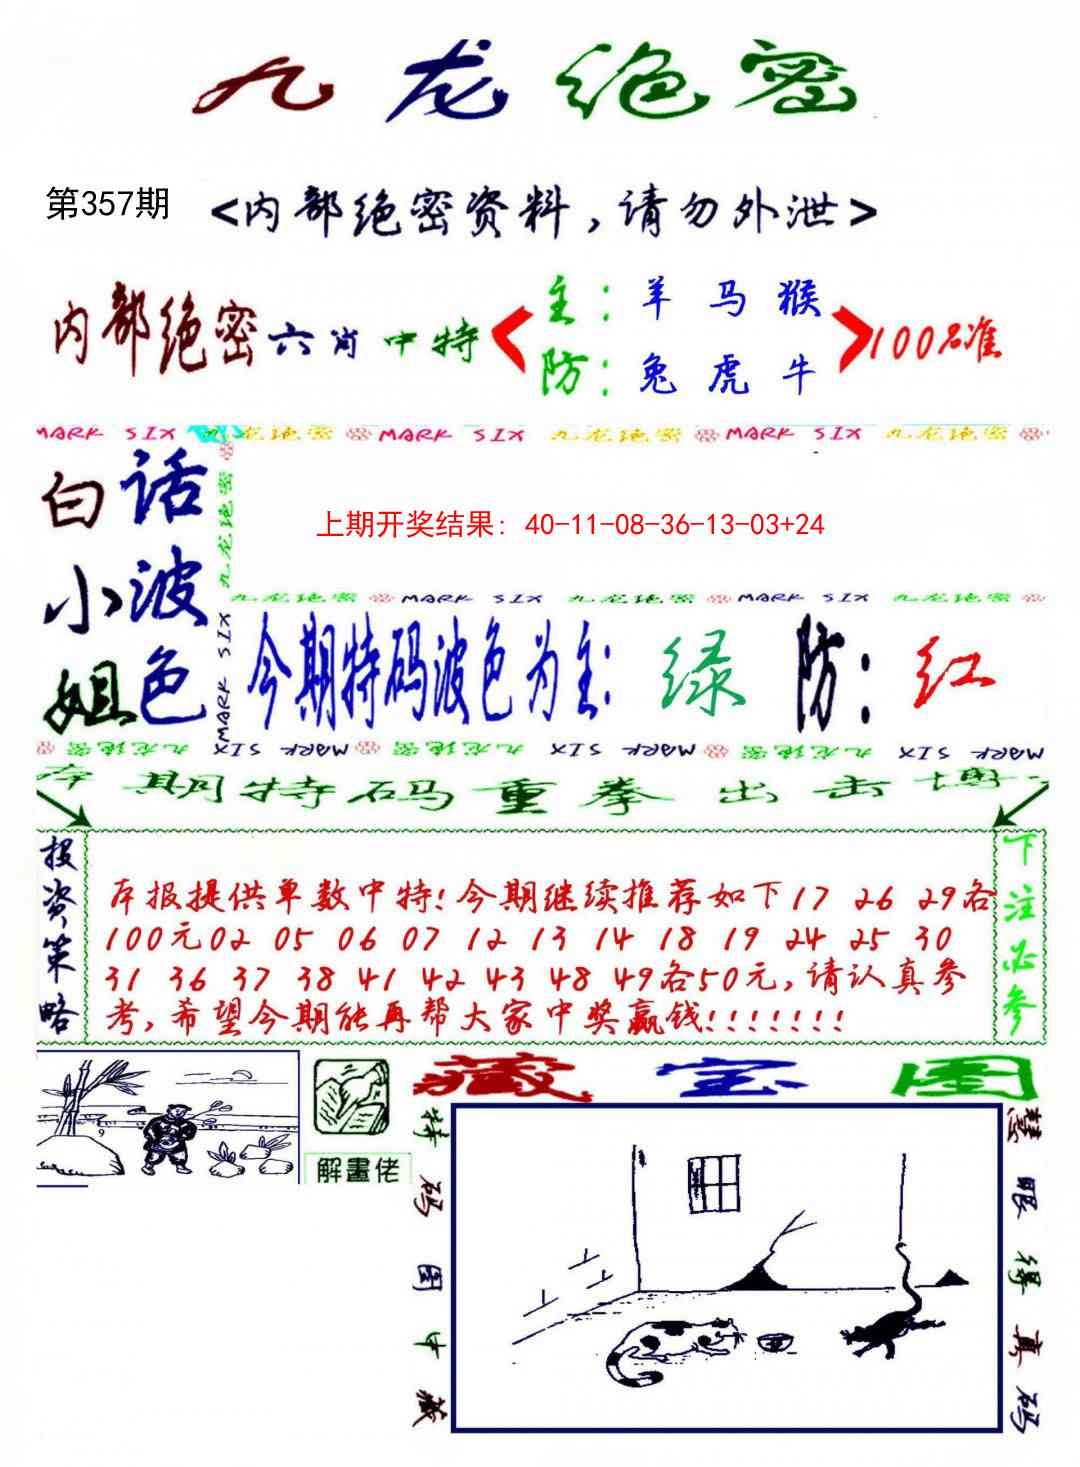 九龙绝密
第357期
<内部绝密资料,请勿外泄>
内部绝密六肖中特
主：羊 马 猴
防：兔 虎 牛
100%准
MARK SIX 九龙绝密 MARK SIX 九龙绝密 MARK SIX 九龙绝密
九龙绝密
MARK SIX
白小姐
话波色
上期开奖结果：40-11-08-36-13-03+24
九龙绝密 MARK SIX 九龙绝密 MARK SIX 九龙绝密
今期特码波色为主：绿 防：红
九龙绝密 MARK SIX 九龙绝密 MARK SIX 九龙绝密 MARK SIX
本期特码重拳出击博
投资策略
本报提供单数中特!今期继续推荐如下17 26 29各
100元02 05 06 07 12 13 14 18 19 24 25 30
31 36 37 38 41 42 43 48 49各50元,请认真参
考,希望今期能再帮大家中奖赢钱!!!!!!!
下注必参
解畫佬
藏宝图
特码图中藏
慧眼得真码